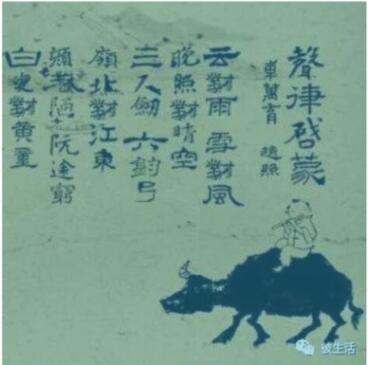 聲律啓蒙
車萬育 趙照
云對雨 雪對風
晚照對晴空
三尺劒 六鈞弓
嶺北對江東
顏巷陋 阮途窮
白叟對黄童
生活